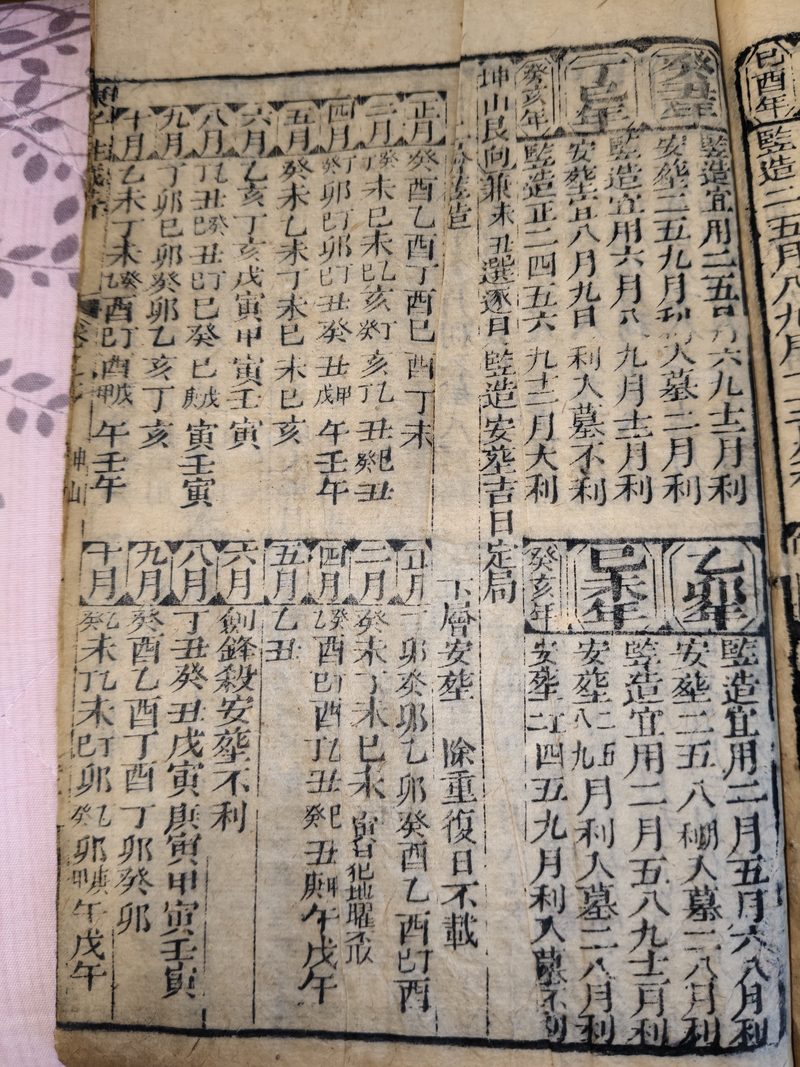 己酉年
監造二五月八九月
癸丑年
監造宜用二五月六九十二月利
安葬二五九月利入墓二月利
丁巳年
監造宜用六月八九月十二月利
安葬宜八月九日利入墓不利
癸亥年
監造正二四五六九十二月大利
乙卯年
監造宜用二月五月六八月利
安葬二五八月利入墓二八月利
己未年
監造宜用二月五八九十二月利
安葬二五八九月利入墓二八月利
癸亥年
安葬正二四五九月利入墓不利
坤山艮向兼未丑選逐日監造安葬吉日定局
正月 癸酉乙酉丁酉巳酉丁未
二月 癸未巳未乙巳亥癸丁亥丁乙丑癸巳丑
四月 癸丁卯丁巳丑癸丑戊甲午壬午
五月 癸未乙未丁未巳未巳亥
六月 乙亥丁亥戊寅甲寅壬寅
八月 丁乙丑癸巳丑丁巳巳癸巳庚戊寅壬寅
九月 丁卯巳卯癸卯乙亥丁亥
十月 乙未丁未癸乙酉丁巳酉甲戊午壬午
下層安葬 除重復日不載
正月 丁卯癸卯乙卯癸酉乙酉丁巳酉
二月 癸未丁未巳未 寅日犯地曜不取
四月 乙癸酉丁巳酉乙丁丑巳癸丑甲庚午戊午
五月 乙丑
六月 劍鋒殺安葬不利
八月 丁丑癸丑戊寅庚寅甲寅壬寅
九月 癸酉乙酉丁酉丁卯癸卯
十月 乙癸未乙丁未丁巳卯乙癸卯庚甲午戊午
坤山